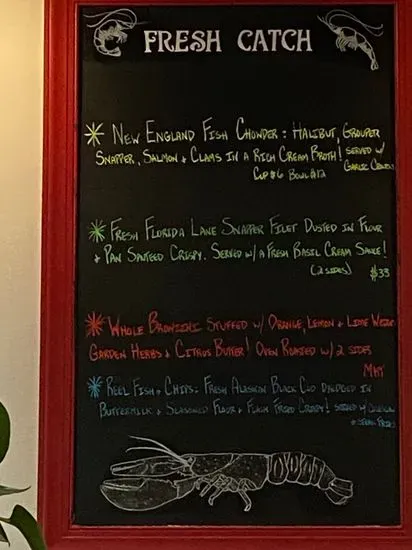 FRESH CATCH
NEW ENGLAND FISH CHOWDER: HALIBUT, GROUPER
SNAPPER, SALMON + CLAMS IN A RICH CREAM BROTH! SERVED W/
GARLIC
CUP $6 BOWL $12
FRESH FLORIDA LANE SNAPPER FILET DUSTED IN FLOUR
+ PAN SAUTEED CRISPY. SERVED W/ A FRESH BASIL CREAM SAUCE!
(2 SIDES) $33
WHOLE BRONZINI STUFFED W/ ORANGE, LEMON + LIME WEDGE
GARDEN HERBS + CITRUS BUTTER! OVEN ROASTED W/ 2 SIDES
MKT
REEL FISH + CHIPS: FRESH ALASKAN BLACK COD DREDGED IN
BUTTERMILK + SEASONED FLOUR + FLASH FRIED CRISPY! SERVED W/ COLESLAW
+ STEAK FRIES